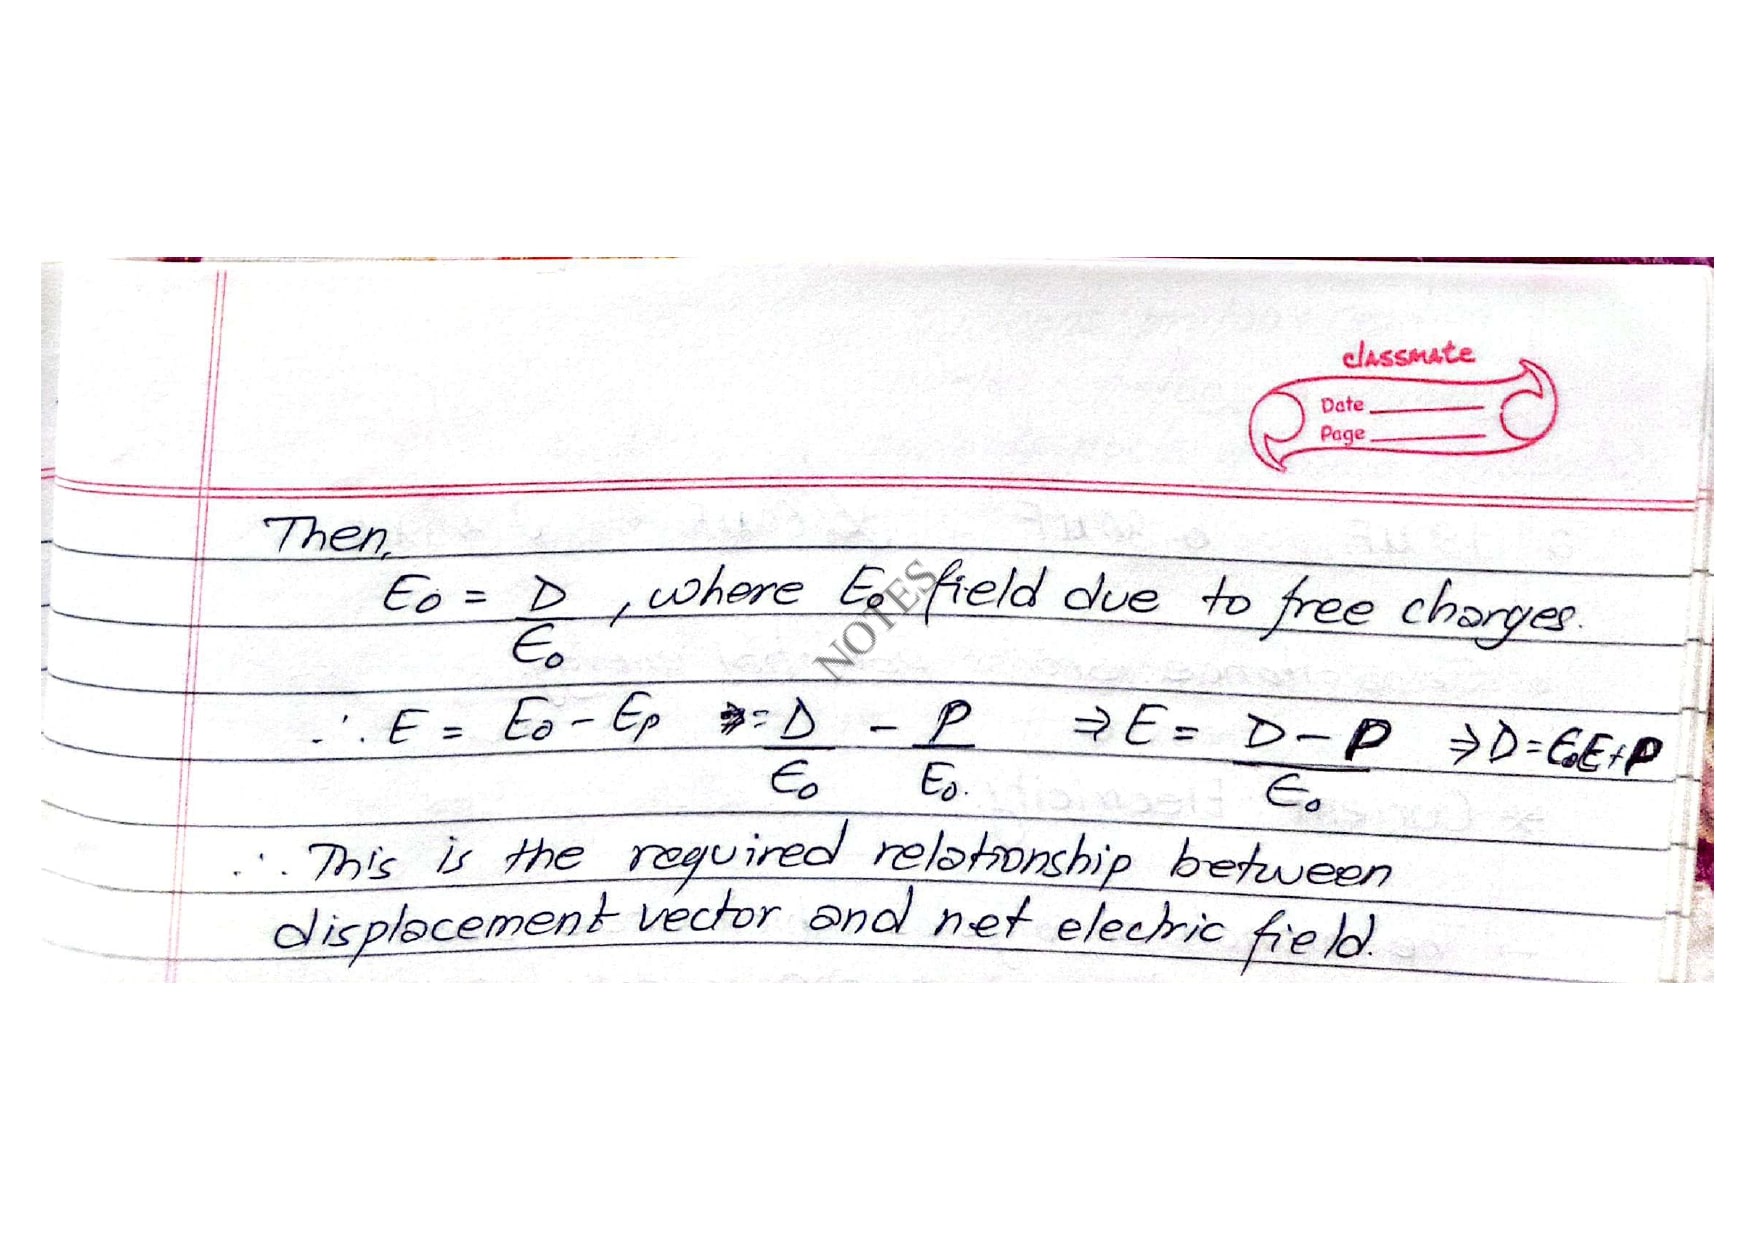 classmate
Date
Page
Then,
E₀ = D/ϵ₀ , where E₀ field due to free charges.
NOTES
∴ E = E₀ - Eₚ = D/ϵ₀ - P/ϵ₀. ⇒ E = D-P/ϵ₀ ⇒ D = ϵ₀E+P
∴ This is the required relationship between
displacement vector and net electric field.